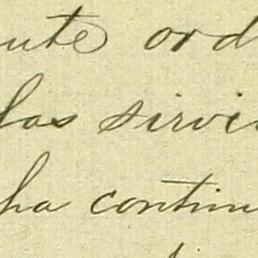 ute ord
las sirvi
ha continu